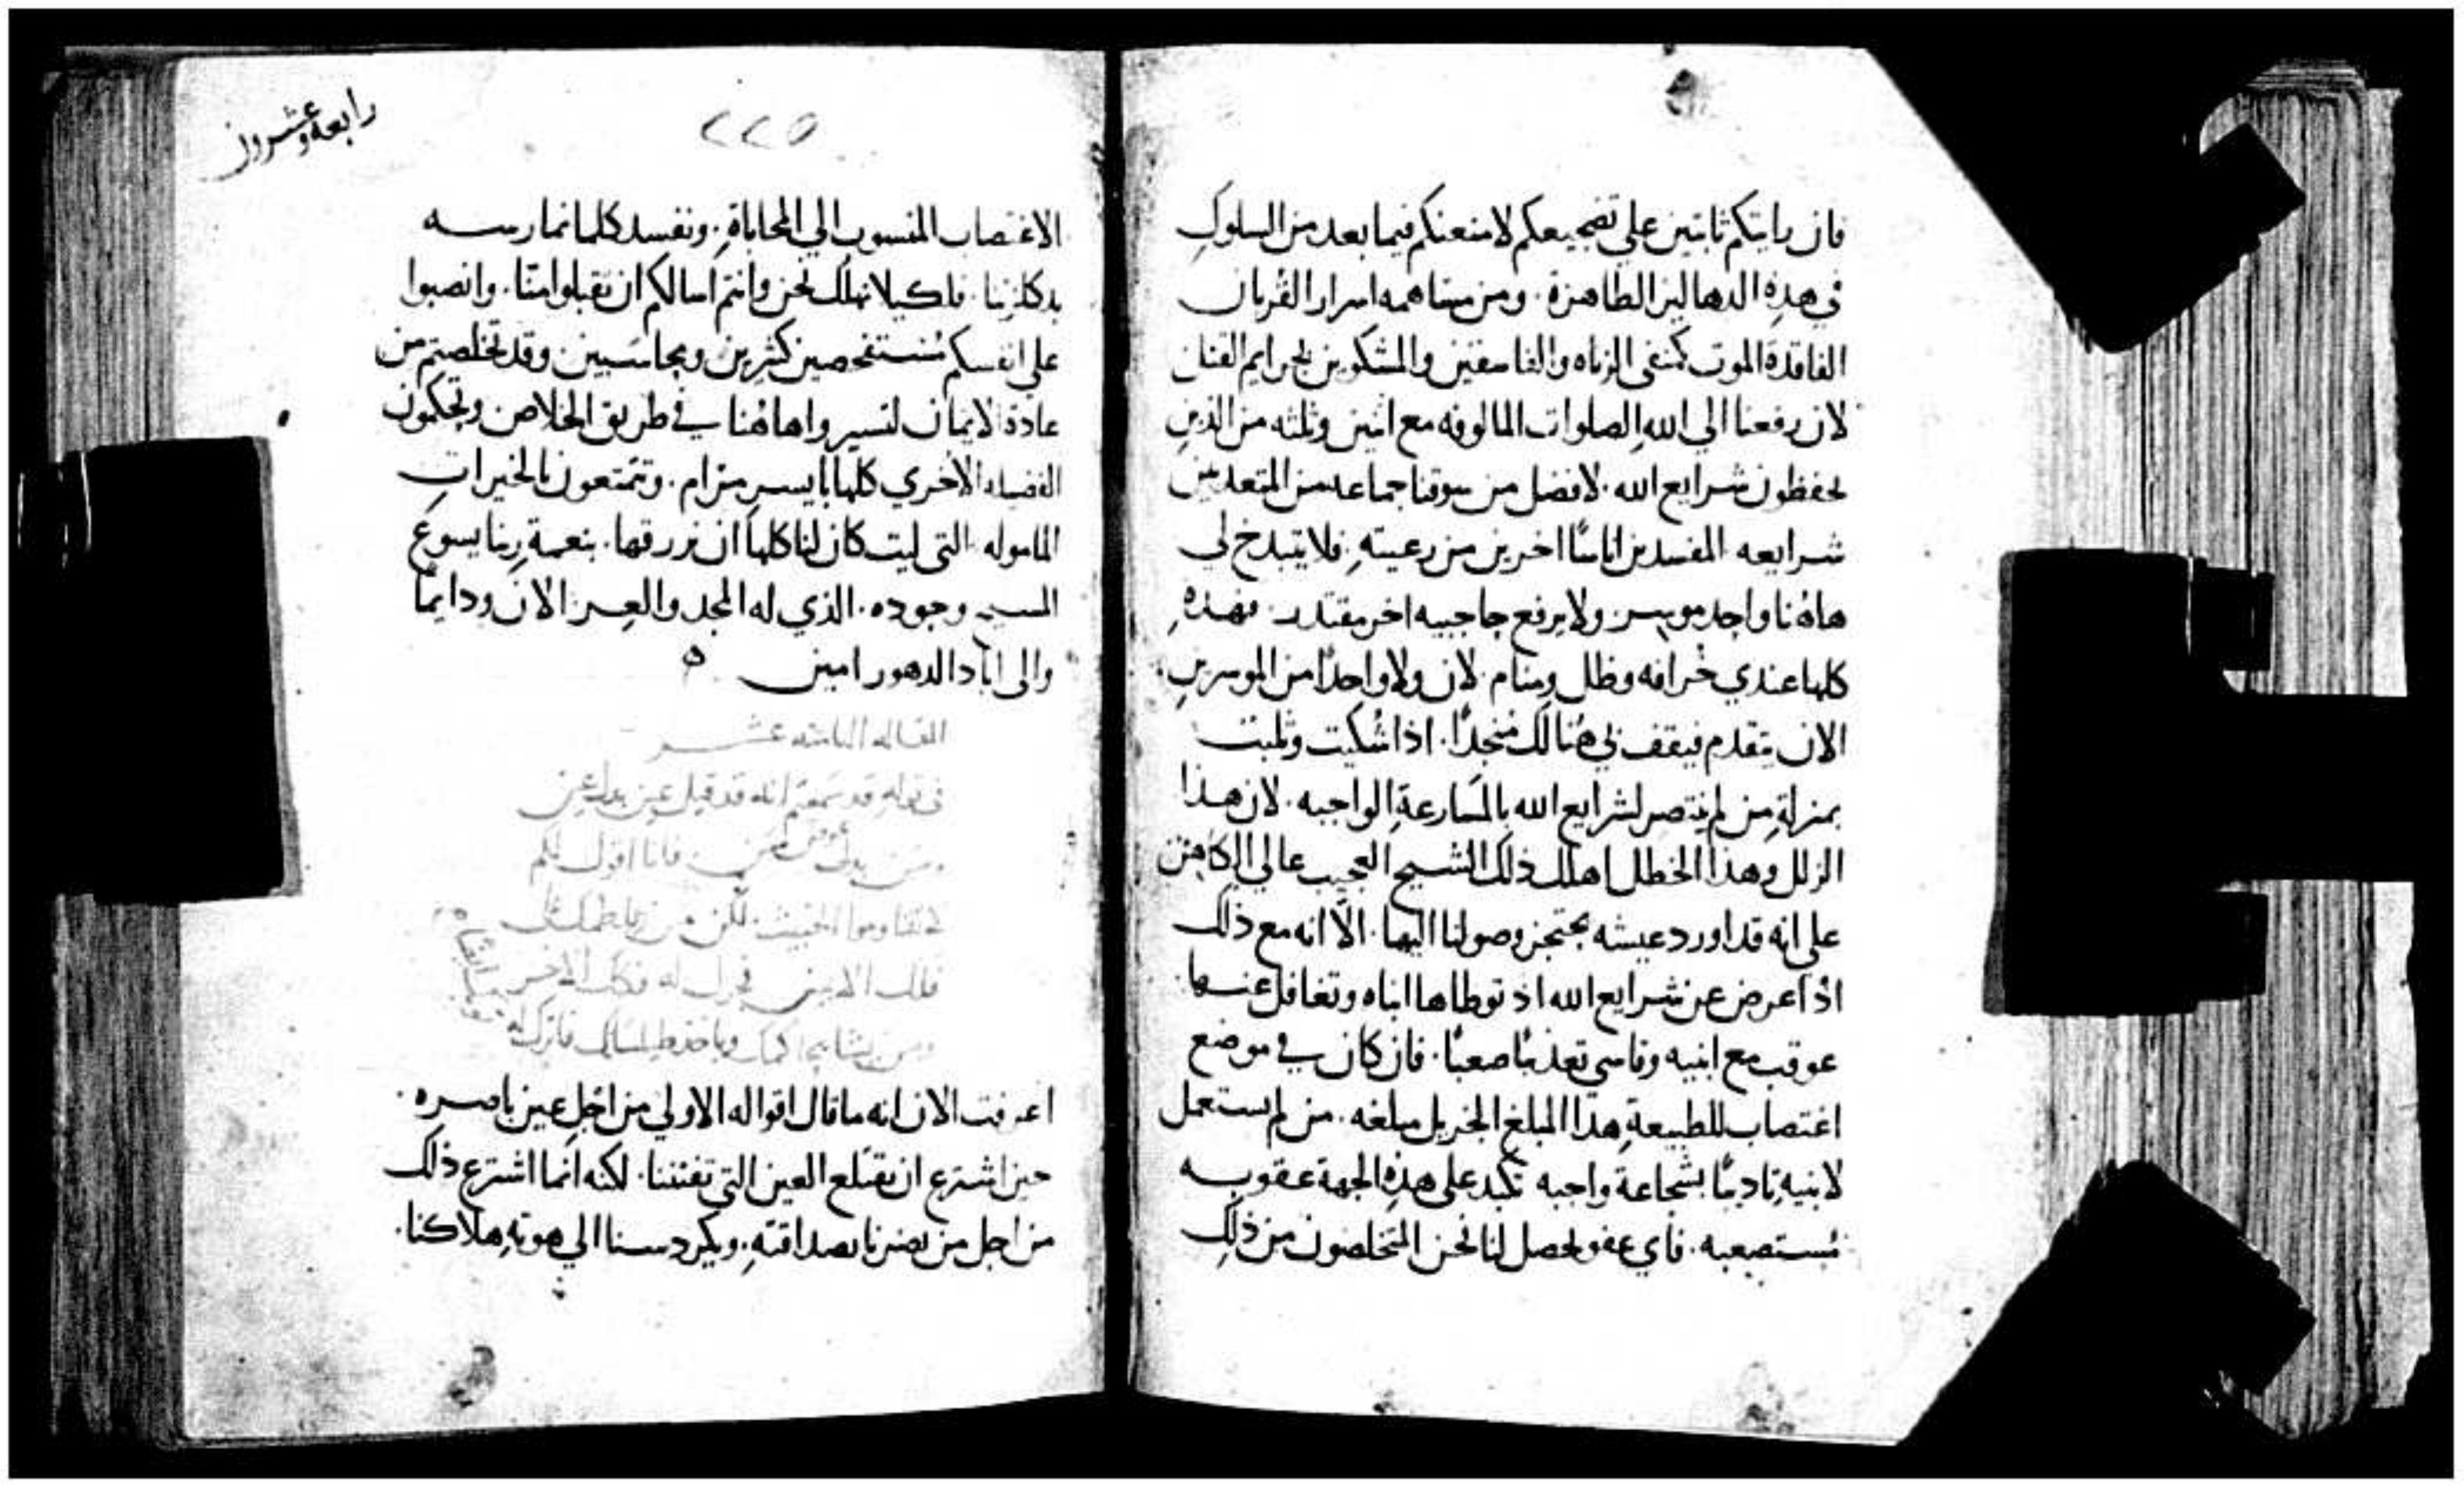 فان رايتكم ثابتين علي تضجيعكم لامنعنكم فيما بعد من السلوك
في هذه الدهاليز الطاهرة. ومن مساهمه اسرار القربان
الفاقدة الموت كمنعي الزناه والفاسقين والمشكوين بجرايم القتال
لان رفعنا الي الله الصلوات المالوفه مع اثنين وثلثه من الذين
يحفظون شرايع الله. لافضل من سوقنا جماعه من المتعديين
شرايعه المفسدين اناسًا اخرين من رعيته. فلا يتبدخ لي
هاهنا واحد موسر ولا يرفع حاجبيه اخر مقتدر. فهذه
كلها عندي خرافه وظل ومنام. لان ولا واحدًا من الموسرين
الان يتقدم فيقف لي هنالك منجدًا. اذا شكيت وثلبت
بمنزلة من لم ينتصر لشرايع الله بالمسارعة الواجبه. لان هذا
الزلل وهذا الخطل اهلك ذلك الشيخ العجيب عالي الكاهن
علي انه قد اورد عيشه وصولنا اليها. الا انه مع ذلك
اذ اعرض عن شرايع الله اذ توطاها ابناه وتغافل عنهما
عوقب مع ابنيه وقاسي تعذيبًا صعبًا. فان كان في موضع
اغتصاب للطبيعة هذا المبلغ الجزيل مبلغه. من لم يستعمل
لابنيه تاديبًا بشجاعة واجبه تكبد علي هذه الجهة عقوبه
مستصعبه. فاي عفو يحصل لنا نحن المتخلصون من ذلك
رابعه وعشرون
٢٢٥
الاغتصاب المنسوب الي المحاباة. ونفسد كلما نمارسه
بدكلزتنا. فلكيلا نهلك نحن وانتم اسالكم ان تقبلوا منا. وانصبوا
علي انفسكم مستفحصين كثيرين ومحاسبين وقد تخلصتم من
عادة الايمان لتسيروا هاهنا في طريق الخلاص وتحكمون
الفضيله الاخري كلها بايسر مرام. وتتمتعون بالخيرات
الماموله التي ليت كان لنا كلها ان نرزقها. بنعمة ربنا يسوع
المسيح وجوده. الذي له المجد والعز الان ودايمًا
والي اباد الدهور امين ه
المقاله الثامنه عشر
في قوله قد سمعتم انه قد قيل عين بدل عين
وسن بدل سن. فانا اقول لكم
لا تقاوموا الخبيث. لكن من لطمك علي
فكك الايمن فحول له فكك الاخر
ومن يشا يحاكمك وياخذ طيلسانك فاترك له
اعرفت الان انه ما قال اقواله الاولي من اجل عين باصره.
حين اشترع ان تقتلع العين التي تفتننا. لكنه انما اشترع ذلك
من اجل من يضرنا بصداقته. ويكردسنا الي هوته هلاكنا.